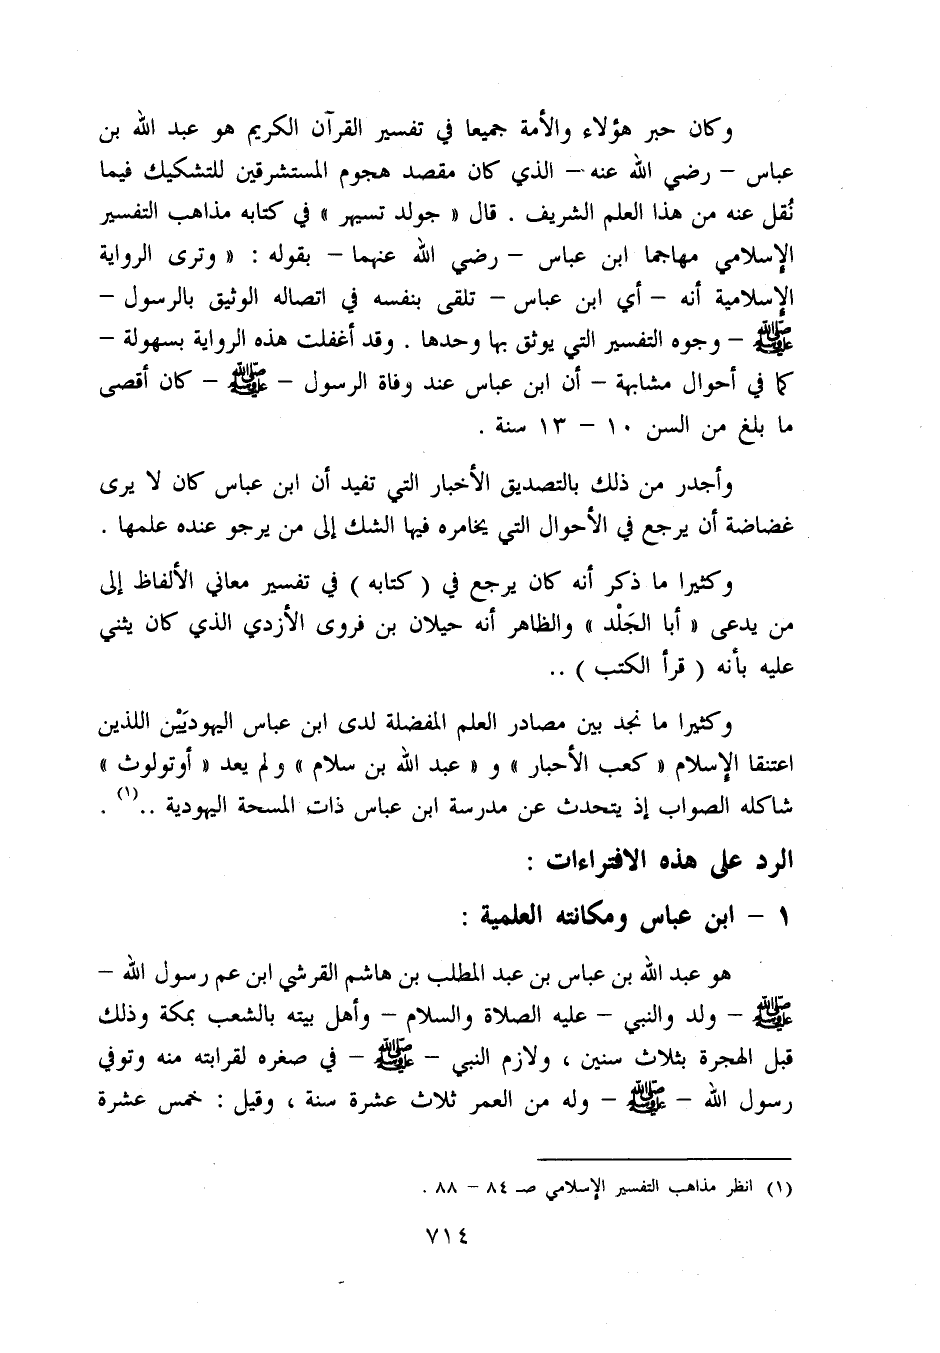 وكان حبر هؤلاء والأمة جميعا في تفسير القرآن الكريم هو عبد الله بن
عباس – رضي الله عنه – الذي كان مقصد هجوم المستشرقين للتشكيك فيما
نُقل عنه من هذا العلم الشريف . قال « جولد تسيهر » في كتابه مذاهب التفسير
الإسلامي مهاجما ابن عباس – رضي الله عنهما – بقوله : « وترى الرواية
الإسلامية أنه – أي ابن عباس – تلقى بنفسه في اتصاله الوثيق بالرسول –
ﷺ – وجوه التفسير التي يوثق بها وحدها . وقد أغفلت هذه الرواية بسهولة –
كما في أحوال مشابهة – أن ابن عباس عند وفاة الرسول – ﷺ – كان أقصى
ما بلغ من السن ١٠ – ١٣ سنة .
وأجدر من ذلك بالتصديق الأخبار التي تفيد أن ابن عباس كان لا يرى
غضاضة أن يرجع في الأحوال التي يخامره فيها الشك إلى من يرجو عنده علمها .
وكثيرا ما ذكر أنه كان يرجع في ( كتابه ) في تفسير معاني الألفاظ إلى
من يدعى « أبا الجَلْد » والظاهر أنه حيلان بن فروى الأزدي الذي كان يثني
عليه بأنه ( قرأ الكتب ) ..
وكثيرا ما نجد بين مصادر العلم المفضلة لدى ابن عباس اليهوديَيْن اللذين
اعتنقا الإسلام « كعب الأحبار » و « عبد الله بن سلام » ولم يعد « أوتولوث »
شاكله الصواب إذ يتحدث عن مدرسة ابن عباس ذات المسحة اليهودية ..(١) .
الرد على هذه الافتراءات :
١ – ابن عباس ومكانته العلمية :
هو عبد الله بن عباس بن عبد المطلب بن هاشم القرشي ابن عم رسول الله –
ﷺ – ولد والنبي – عليه الصلاة والسلام – وأهل بيته بالشعب بمكة وذلك
قبل الهجرة بثلاث سنين ، ولازم النبي – ﷺ – في صغره لقرابته منه وتوفي
رسول الله – ﷺ – وله من العمر ثلاث عشرة سنة ، وقيل : خمس عشرة
(١) انظر مذاهب التفسير الإسلامي صـ ٨٤ – ٨٨ .
٧١٤